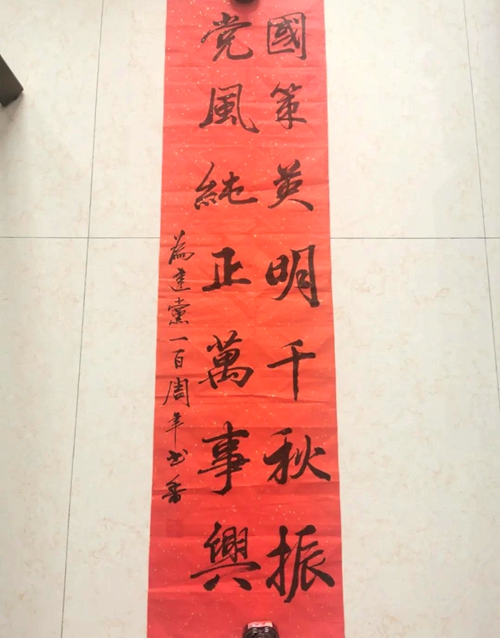 國策英明千秋振
党風純正萬事興
為建黨一百周年書香